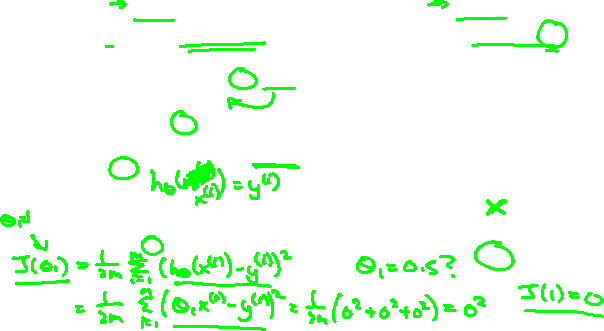 h_θ(x^(i)) = y^(i)
J(θ₁) = 1/2m Σ_{i=1}^m (h_θ(x^(i)) - y^(i))² θ₁ = 0.5?
= 1/2m Σ_{i=1}^m (θ₁x^(i) - y^(i))² = 1/2m (0² + 0² + 0²) = 0² J(1) = 0